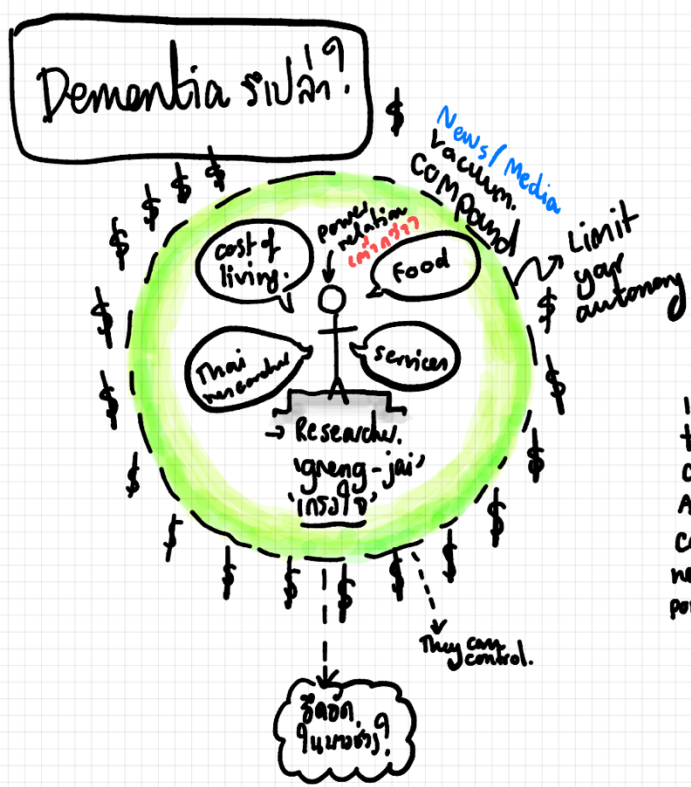 Dementia รึเปล่า?
$
News/Media
vacuum.
compound
$ $ $ $ $ $ $
Limit
your
autonomy
$ $
cost of
living.
power
relation
Food
Thai
researcher
services
→ Researcher.
'greng-jai'
'เกรงใจ'
$ $ $ $ $ $ $ $ $ $
They can
control.
อึดอัด
ในบางช่วง?